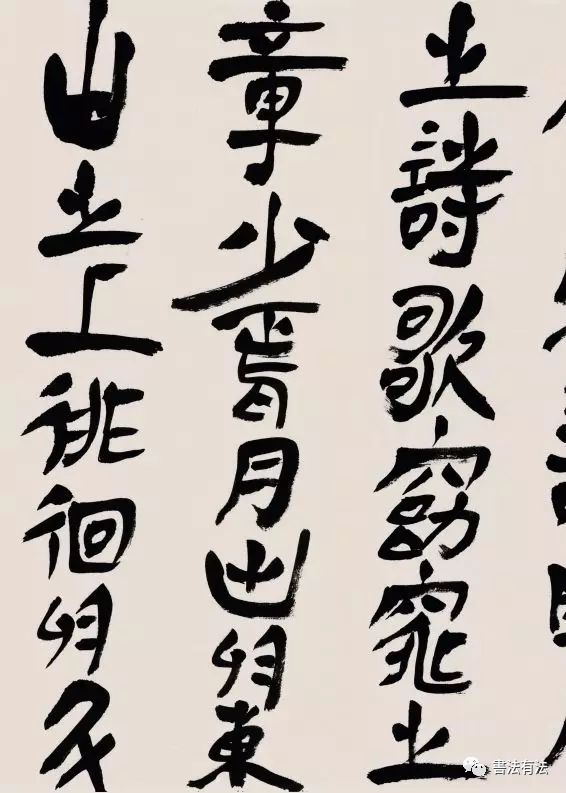 之詩歌窈窕之
章少焉月出於東
山之上徘徊於
書法有法